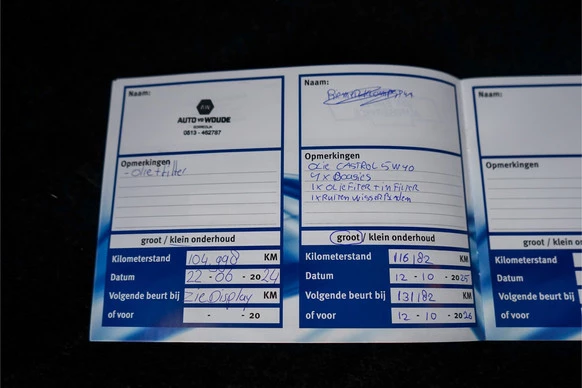 Naam:
AUTO VD WOUDE
0513 - 462787
Opmerkingen
- olie + filter
groot / klein onderhoud
Kilometerstand 104.998 KM
Datum 22 - 06 - 2024
Volgende beurt bij zie Display
of voor - - 20
Naam:
Opmerkingen
OLIE CASTROL 5W40
4 x Bougies
1x OLIEFILTER + inFILTER
1x Ruitenwisser
groot / klein onderhoud
Kilometerstand 116182 KM
Datum 12 - 10 - 2025
Volgende beurt bij 131182 KM
of voor 12 - 10 - 2026
Naam:
Opmerkingen
groot / klein ond
Kilometerstand
Datum
Volgende beurt bij
of voor